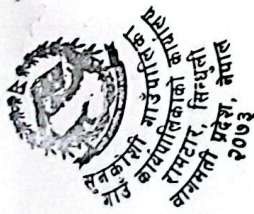 सुनकोशी गाउँपालिका
गाउँ कार्यपालिकाको कार्यालय
रामटार, सिन्धुली
वागमती प्रदेश, नेपाल
२०७३